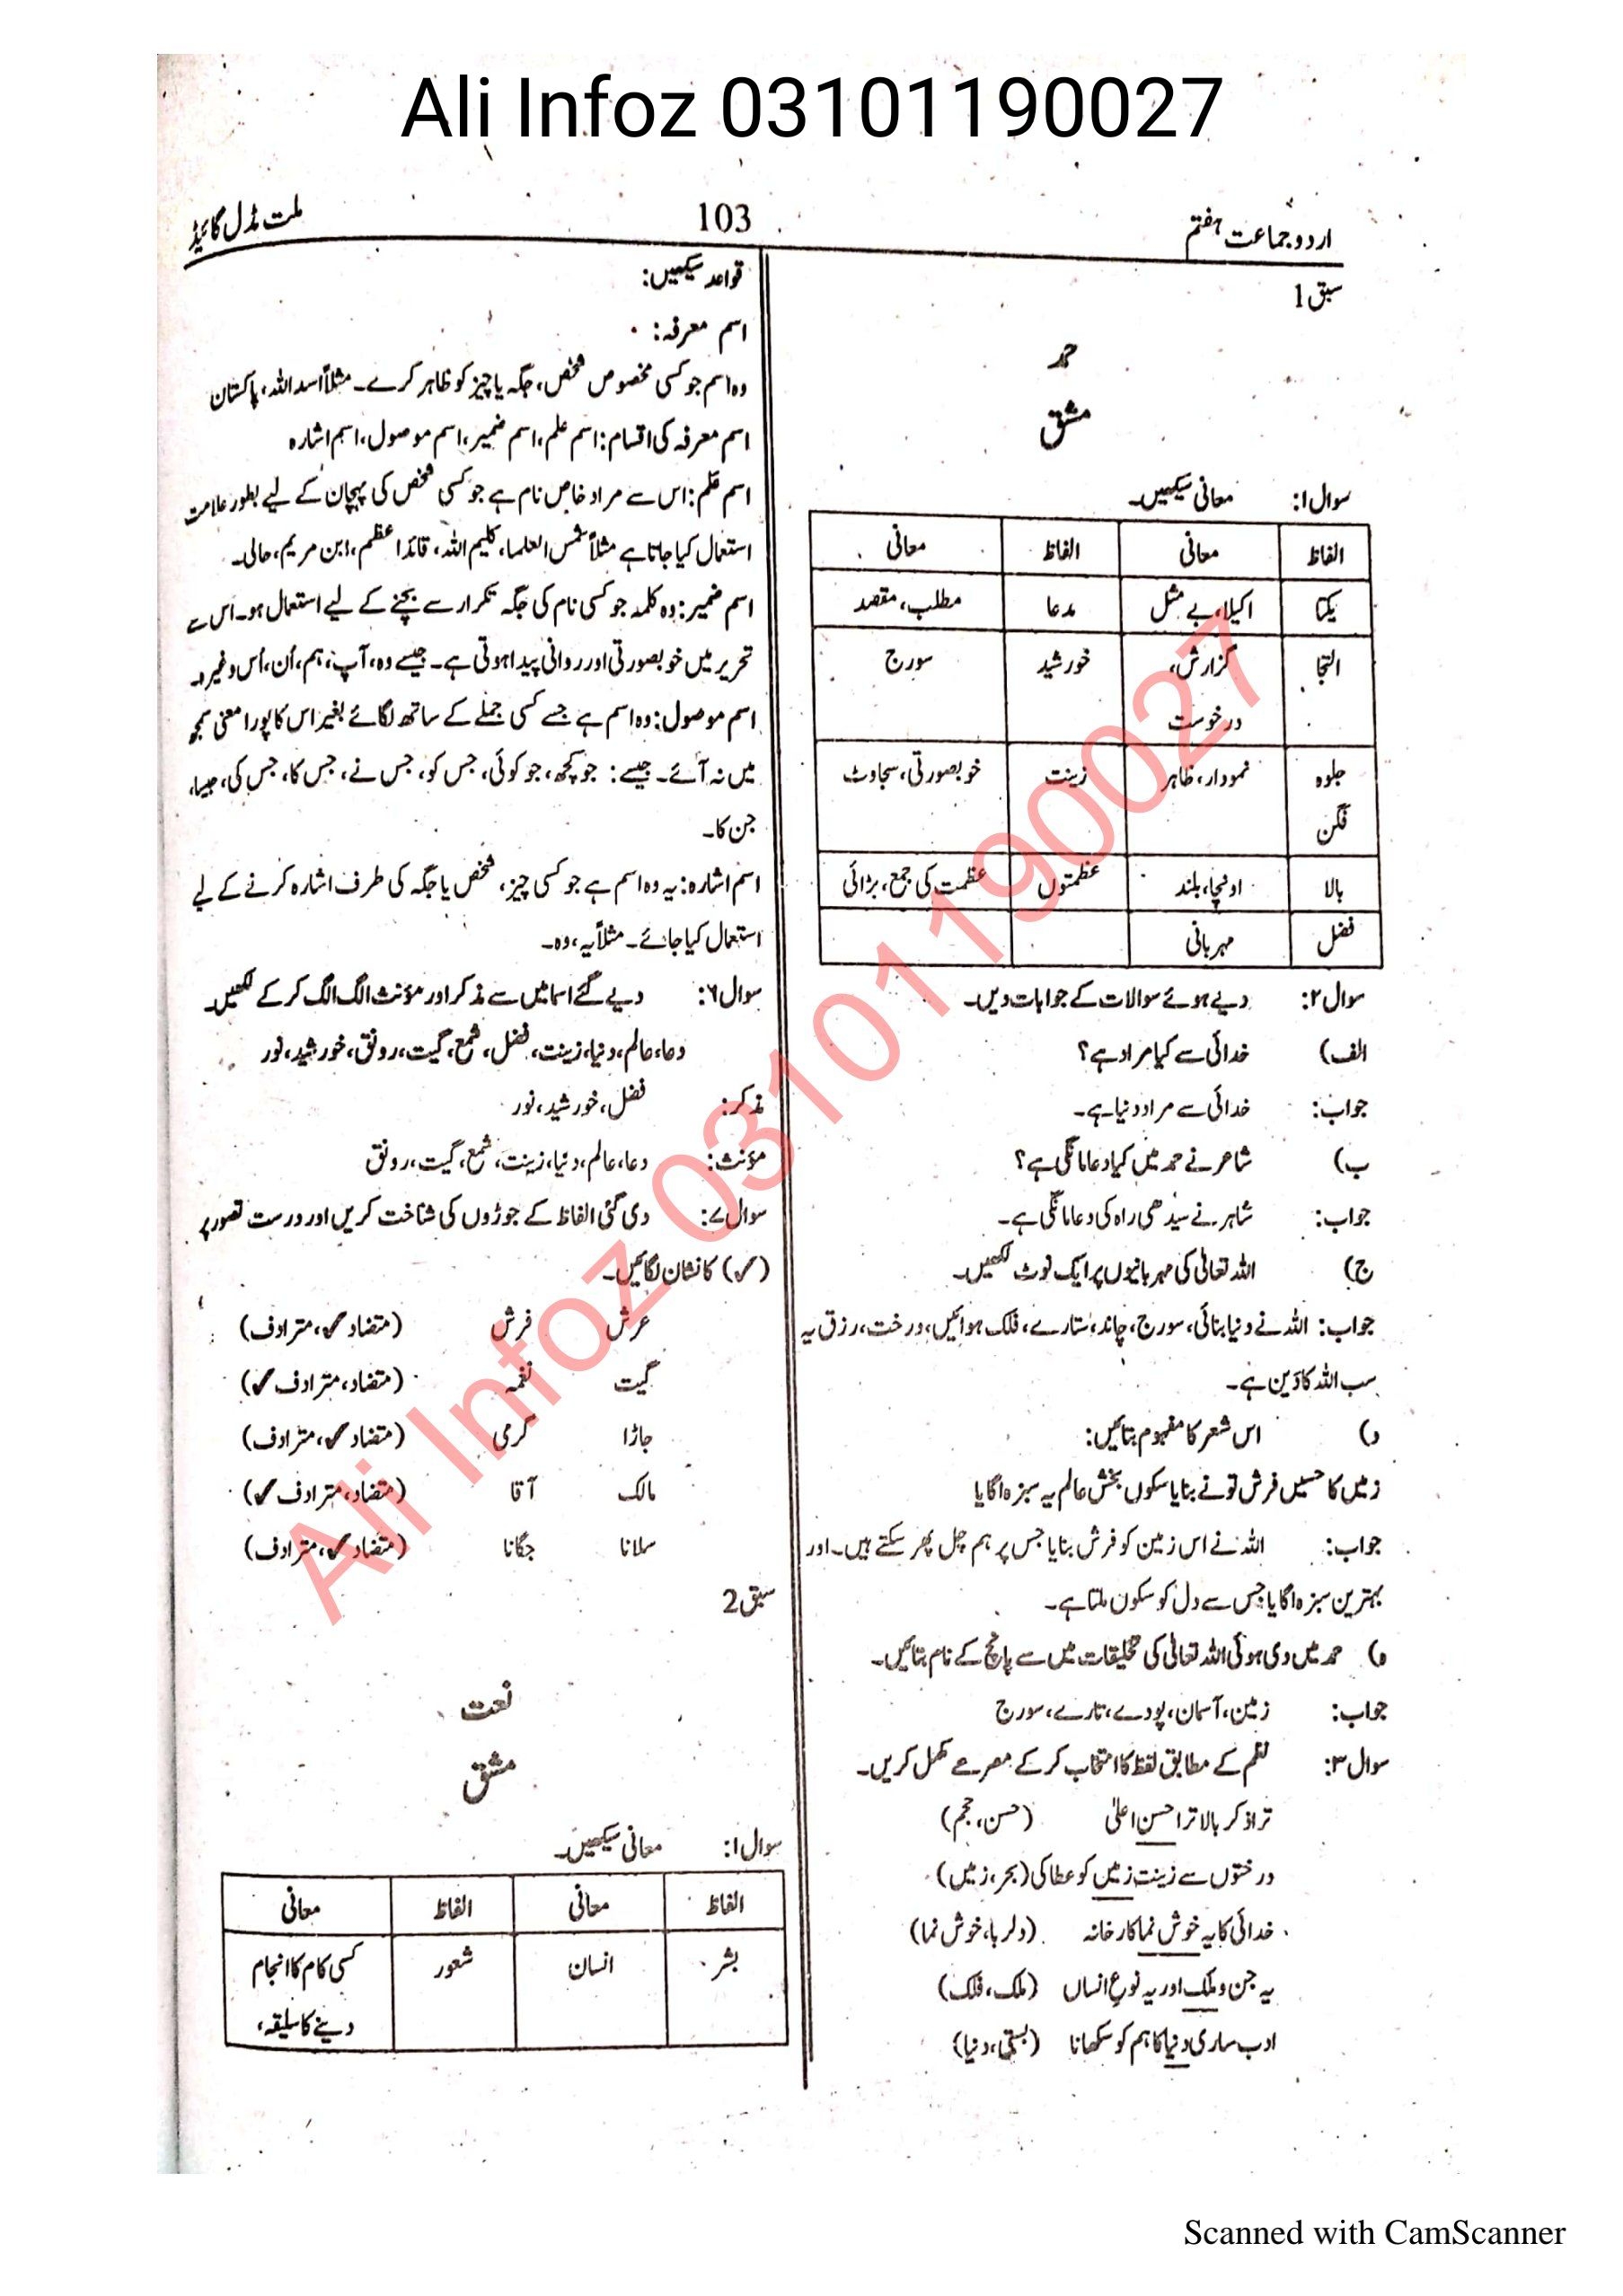 Ali Infoz 03101190027
اردو جماعت ہفتم 103 ملت مڈل گائیڈ
سبق 1
حمد
مشق
سوال ۱: معانی سیکھیں۔
الفاظ معانی الفاظ معانی
یکتا اکیلا، بے مثل مدعا مطلب، مقصد
التجا گزارش، خورشید سورج
درخوست
جلوہ نمودار، ظاہر زینت خوبصورتی، سجاوٹ
فگن
بالا اونچا، بلند عظمتوں عظمت کی جمع، بڑائی
فضل مہربانی
سوال ۲: دیے ہوئے سوالات کے جوابات دیں۔
الف) خدائی سے کیا مراد ہے؟
جواب: خدائی سے مراد دنیا ہے۔
ب) شاعر نے حمد میں کیا دعا مانگی ہے؟
جواب: شاہر نے سیدھی راہ کی دعا مانگی ہے۔
ج) اللہ تعالیٰ کی مہربانیوں پر ایک نوٹ لکھیں۔
جواب: اللہ نے دنیا بنائی، سورج، چاند، ستارے، فلک ہوائیں، درخت، رزق یہ
سب اللہ کا دَین ہے۔
د) اس شعر کا مفہوم بتائیں:
زمیں کا حسیں فرش تو نے بنایا سکوں بخش عالم یہ سبزہ اگایا
جواب: اللہ نے اس زمین کو فرش بنایا جس پر ہم چل پھر سکتے ہیں۔ اور
بہترین سبزہ اگایا جس سے دل کو سکون ملتا ہے۔
ہ) حمد میں دی ہوئی اللہ تعالیٰ کی تخلیقات میں سے پانچ کے نام بتائیں۔
جواب: زمین، آسمان، پودے، تارے، سورج
سوال ۳: نظم کے مطابق لفظ کا انتخاب کر کے مصرعے مکمل کریں۔
ترا ذکر بالا ترا حسن اعلیٰ (حسن، حجم)
درختوں سے زینت زمیں کو عطا کی (بحر، زمیں)
خدائی کا یہ خوش نما کارخانہ (دلربا، خوش نما)
یہ جن و ملک اور یہ نوعِ انساں (ملک، فلک)
ادب ساری دنیا کا ہم کو سکھانا (بستی، دنیا)
قواعد سیکھیں:
اسم معرفہ:
وہ اسم جو کسی مخصوص شخص، جگہ یا چیز کو ظاہر کرے۔ مثلاً اسد اللہ، پاکستان
اسم معرفہ کی اقسام: اسم علم، اسم ضمیر، اسم موصول، اسم اشارہ
اسم عَلم: اس سے مراد خاص نام ہے جو کسی شخص کی پہچان کے لیے بطور علامت
استعمال کیا جاتا ہے مثلاً شمس العلما، کلیم اللہ، قائد اعظم، ابن مریم، حالی۔
اسم ضمیر: وہ کلمہ جو کسی نام کی جگہ تکرار سے بچنے کے لیے استعمال ہو۔ اس سے
تحریر میں خوبصورتی اور روانی پیدا ہوتی ہے۔ جیسے وہ، آپ، ہم، اُن، اُس وغیرہ۔
اسم موصول: وہ اسم ہے جسے کسی جملے کے ساتھ لگائے بغیر اس کا پورا معنی سمجھ
میں نہ آئے۔ جیسے: جو کچھ، جو کوئی، جس کو، جس نے، جس کا، جس کی، جیسا،
جن کا۔
اسم اشارہ: یہ وہ اسم ہے جو کسی چیز، شخص یا جگہ کی طرف اشارہ کرنے کے لیے
استعمال کیا جائے۔ مثلاً یہ، وہ۔
سوال ۶: دیے گئے اسما میں سے مذکر اور مؤنث الگ الگ کر کے لکھیں۔
دعا، عالم، دنیا، زینت، فضل، شمع، گیت، رونق، خورشید، نور
مذکر: فضل، خورشید، نور
مؤنث: دعا، عالم، دنیا، زینت، شمع، گیت، رونق
سوال ۷: دی گئی الفاظ کے جوڑوں کی شناخت کریں اور درست تصور پر
(✓) کا نشان لگائیں۔
عرش فرش (متضاد ✓، مترادف)
گیت نغمہ (متضاد، مترادف ✓)
جاڑا گرمی (متضاد ✓، مترادف)
مالک آقا (متضاد، مترادف ✓)
سلانا جگانا (متضاد ✓، مترادف)
سبق 2
نعت
مشق
سوال ۱: معانی سیکھیں۔
الفاظ معانی الفاظ معانی
بشر انسان شعور کسی کام کا انجام
دینے کا سلیقہ،
Ali Infoz 03101190027
Scanned with CamScanner